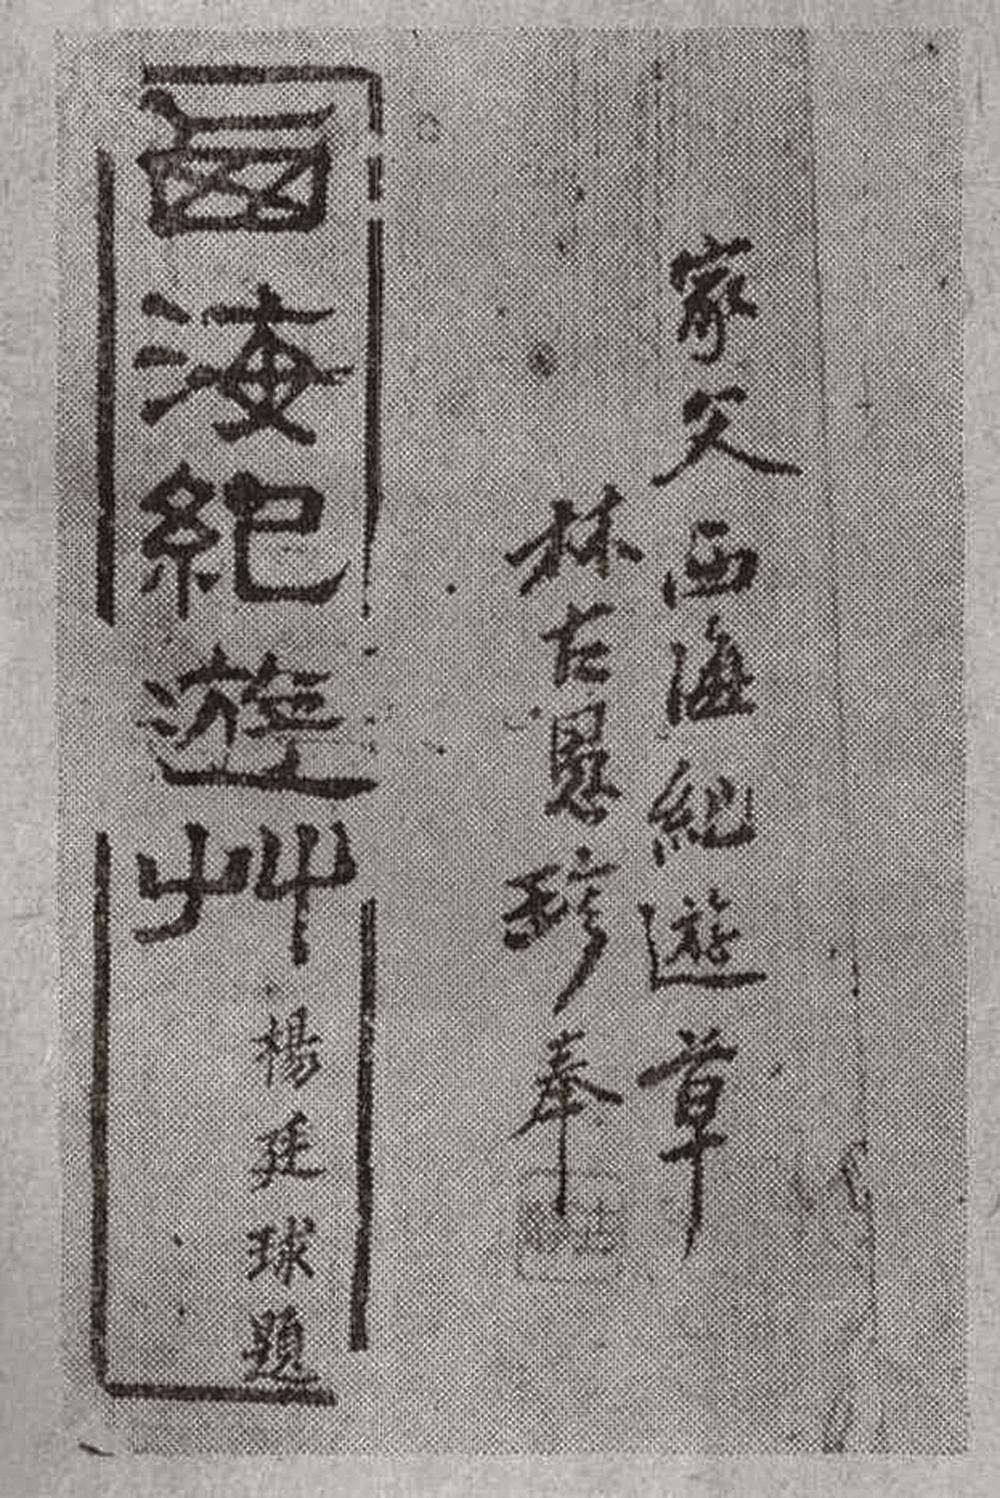 家父西海紀遊草
林古愚奉
西海紀遊艸
楊廷球題